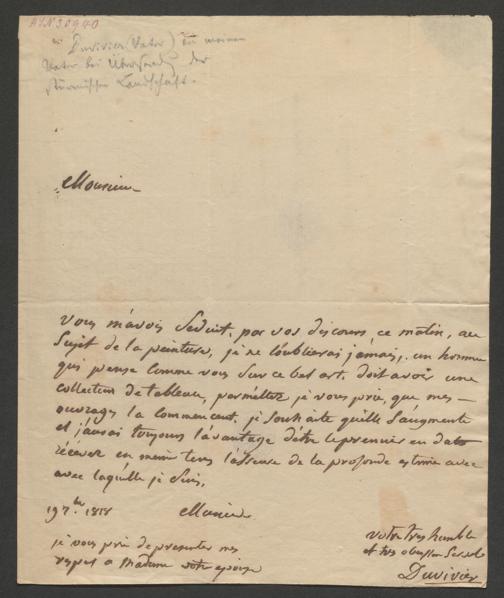 Duvivier (Vater) an meinen
Vater bei Übersend. der
stürmischen Landschaft.
Monsieur
Vous m'avois seduit, par vos discours, ce matin, au
Sujet de la peinture, je ne l'oublierai jamais, un homme
qui pense comme vous sur ce bel art, doit avoir une
collection de tableau, permettez je vous prie, que mes
ouvrages la commencent, je souhaite quelle s'augmente
et j'aurai toujours l'avantage d'être le premier en date
recever en meme tems l'asseure de la profonde estime avec
avec laquélle je suis,
19 7.bre 1818 Monsieur
votre tres humble
et tres obeissan
Duvivier
je vous prie de presenter mes
respet a Madame votre epouse